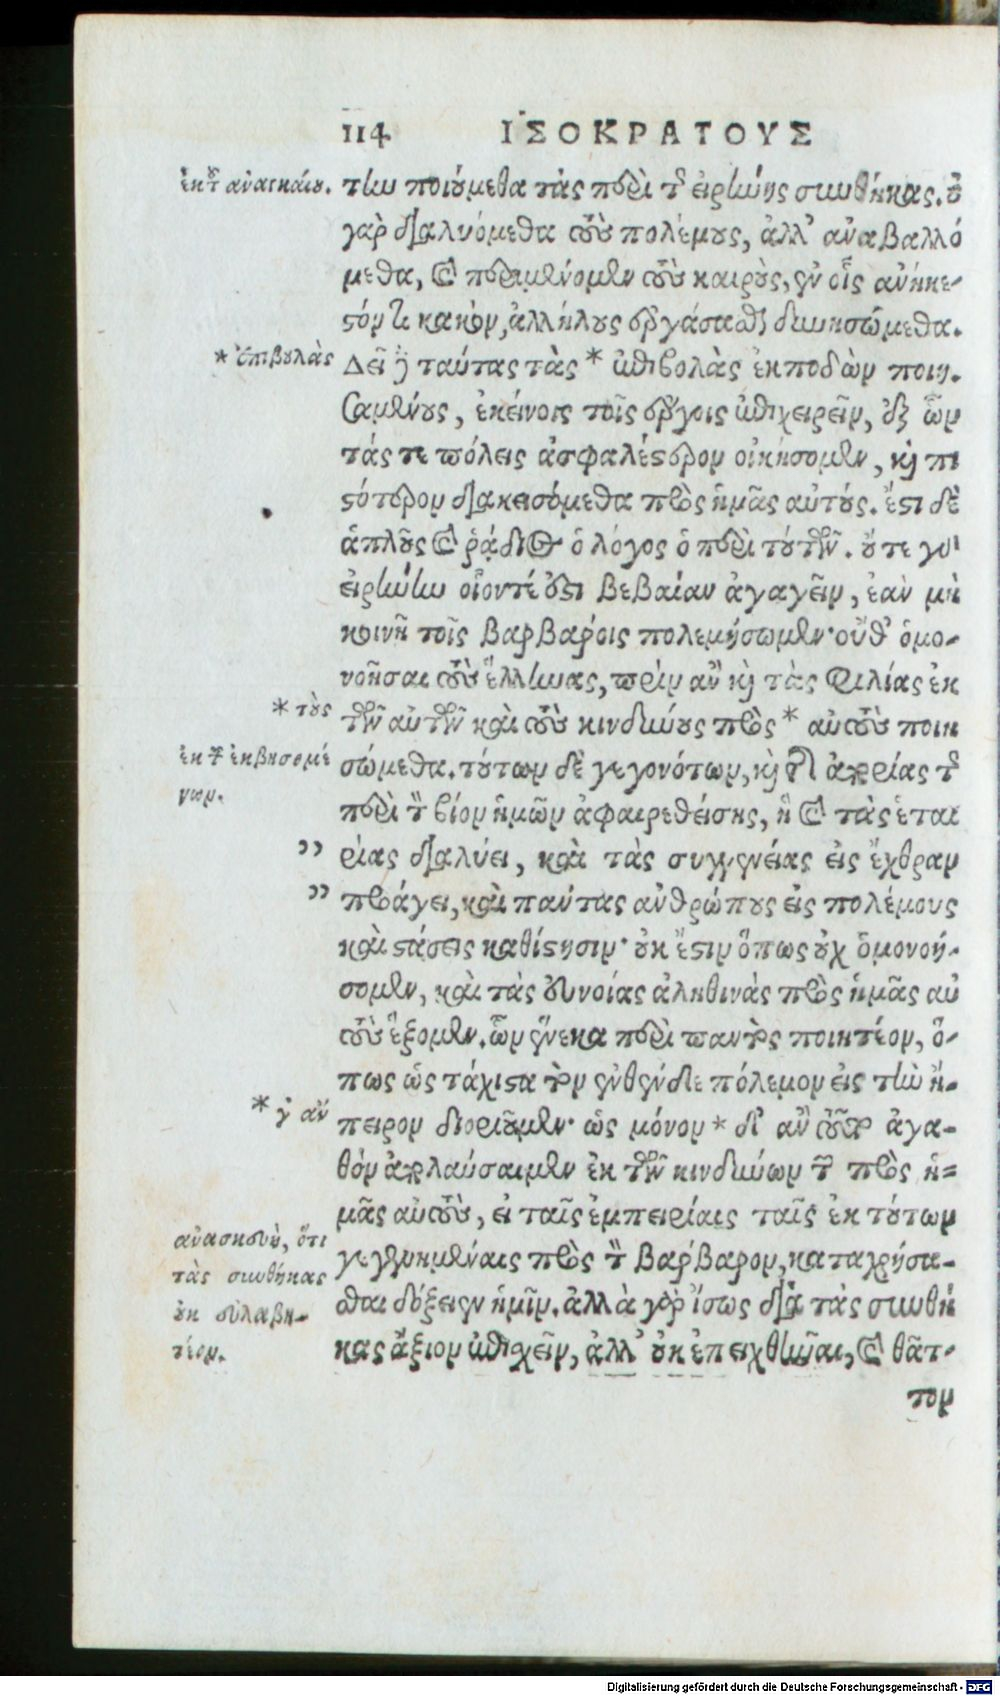 114 ΙΣΟΚΡΑΤΟΥΣ
ἐκ τοῦ ἀναγκαίου.
την ποιούμεθα τὰς περὶ τῆς εἰρήνης συνθήκας. οὐ
γὰρ διαλυόμεθα τοὺς πολέμους, ἀλλ' ἀναβαλλό
μεθα, καὶ περιμένομεν τοὺς καιροὺς, ἐν οἷς ἀνήκε-
στόν τι κακὸν ἀλλήλους ἐργάσασθαι δυνησώμεθα.
* ἐπιβουλὰς
Δεῖ δὲ ταύτας τὰς * ἐπιβολὰς ἐκποδὼν ποιη-
σαμένους, ἐκείνοις τοῖς ἔργοις ἐπιχειρεῖν, ἐξ ὧν
τάς τε πόλεις ἀσφαλέστερον οἰκήσομεν, καὶ πι
στότερον διακεισόμεθα πρὸς ἡμᾶς αὐτούς. ἔστι δὲ
ἁπλοῦς καὶ ῥᾴδιος ὁ λόγος ὁ περὶ τούτων. οὔτε γὰρ
εἰρήνην οἷόντέ ἐστι βεβαίαν ἀγαγεῖν, ἐὰν μὴ
κοινῇ τοῖς βαρβάροις πολεμήσωμεν· οὔθ' ὁμο-
νοῆσαι τοὺς ἕλληνας, πρὶν ἂν καὶ τὰς φιλίας ἐκ
* τοὺς
τῶν αὐτῶν καὶ τοὺς κινδύνους πρὸς * αὐτοὺς ποιη
ἐκ τῶν ἐκβησομέ
νων.
σώμεθα. τούτων δὲ γεγονότων, καὶ τῆς ἀπορίας τῆς
περὶ τὸν βίον ἡμῶν ἀφαιρεθείσης, ἣ καὶ τὰς ἑται
,, ρίας διαλύει, καὶ τὰς συγγενείας εἰς ἔχθραν
,, προάγει, καὶ πάντας ἀνθρώπους εἰς πολέμους
καὶ στάσεις καθίστησιν· οὐκ ἔστιν ὅπως οὐχ ὁμονοή-
σομεν, καὶ τὰς εὐνοίας ἀληθινὰς πρὸς ἡμᾶς αὐ
τοὺς ἕξομεν. ὧν ἕνεκα περὶ παντὸς ποιητέον, ὅ-
πως ὡς τάχιστα τὸν ἐνθένδε πόλεμον εἰς τὴν ἤ-
* γ' ἂν
πειρον διοριοῦμεν· ὡς μόνον * δι' ἂν τοῦτο ἀγα-
θὸν ἀπολαύσαιμεν ἐκ τῶν κινδύνων τῶν πρὸς ἡ=
μᾶς αὐτοὺς, εἰ ταῖς ἐμπειρίαις ταῖς ἐκ τούτων
ἀνασκευὴ, ὅτι
τὰς συνθήκας
οὐκ εὐλαβη-
τέον.
γεγενημέναις πρὸς τὸν βάρβαρον, καταχρήσα-
σθαι δόξειεν ἡμῖν. ἀλλὰ γὰρ ἴσως διὰ τὰς συνθή
κας ἄξιον ἐπισχεῖν, ἀλλ' οὐκ ἐπειχθῆναι, καὶ θᾶτ-
τον
Digitalisierung gefördert durch die Deutsche Forschungsgemeinschaft - DFG